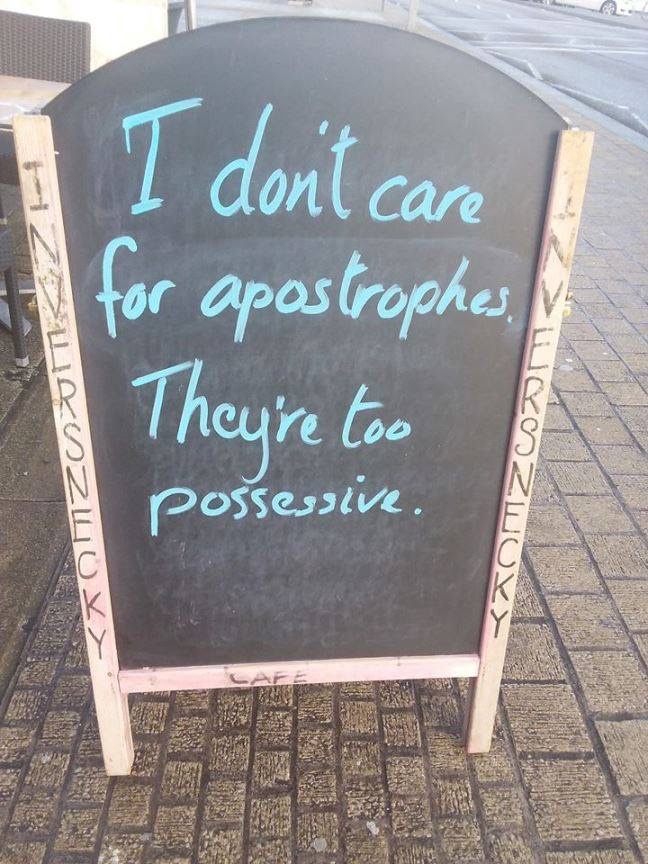 I don't care
for apostrophes.
They're too
possessive.
INVERSNECKY
INVERSNECKY
CAFE